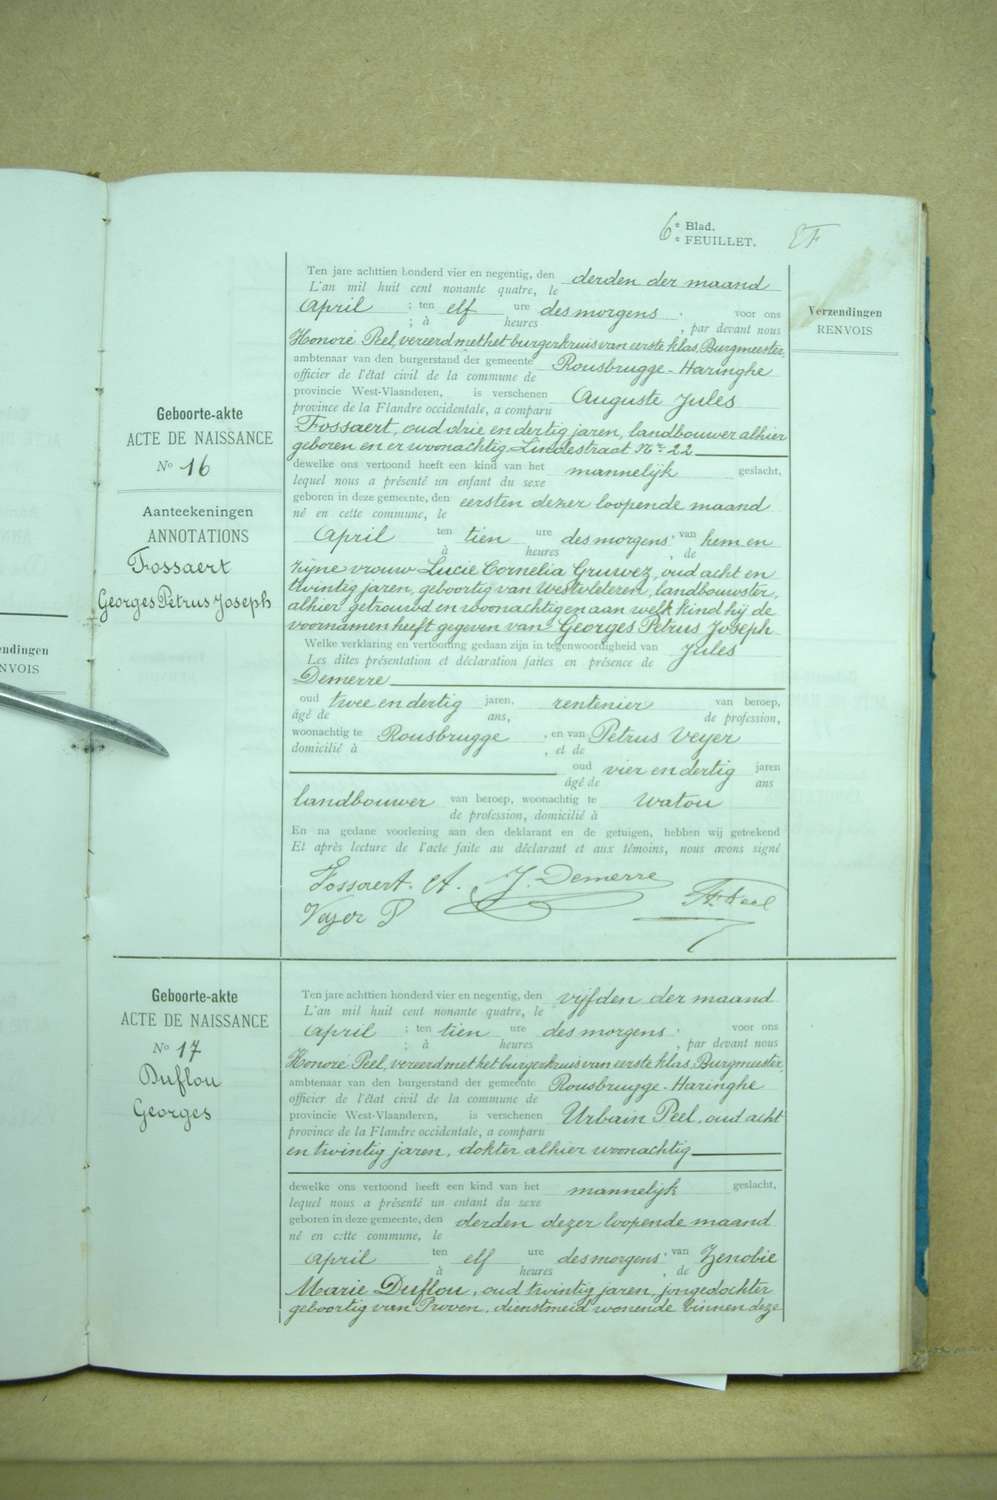 6e Blad.
e FEUILLET.
EF
Verzendingen
RENVOIS
Geboorte-akte
ACTE DE NAISSANCE
No 16
Aanteekeningen
ANNOTATIONS
Fossaert
Georges Petrus Joseph
Ten jare achttien honderd vier en negentig, den
L'an mil huit cent nonante quatre, le
derden der maand
April ; ten elf ure des morgens voor ons
; à heures , par devant nous
Honoré Peel, vereerd met het burgerkruis van eerste klas, Burgmeester,
ambtenaar van den burgerstand der gemeente
officier de l'état civil de la commune de
Rousbrugge-Haringhe
provincie West-Vlaanderen, is verschenen
province de la Flandre occidentale, a comparu
Auguste Jules
Fossaert, oud drie en dertig jaren, landbouwer alhier
geboren en er woonachtig Lindestraat Nr 22
dewelke ons vertoond heeft een kind van het mannelijk geslacht,
lequel nous a présenté un enfant du sexe
geboren in deze gemeente, den eersten dezer loopende maand
né en cette commune, le
April ten tien ure des morgens, van hem en
à heures , de
zijne vrouw Lucie Cornelia Gruwez, oud acht en
twintig jaren, geboortig van Westvleteren, landbouwster,
alhier getrouwd en woonachtig en aan welk kind hij de
voornamen heeft gegeven van Georges Petrus Joseph
Welke verklaring en vertooning gedaan zijn in tegenwoordigheid van Jules
Les dites présentation et déclaration faites en présence de
Demerre
oud twee en dertig jaren, rentenier van beroep,
âgé de ans, de profession,
woonachtig te Rousbrugge , en van Petrus Veyer
domicilié à , et de
oud vier en dertig jaren
âgé de ans
landbouwer van beroep, woonachtig te Watou
de profession, domicilié à
En na gedane voorlezing aan den deklarant en de getuigen, hebben wij geteekend
Et après lecture de l'acte faite au déclarant et aux témoins, nous avons signé
Fossaert. A. J. Demerre
Veyer P H. Peel
Geboorte-akte
ACTE DE NAISSANCE
No 17
Duflou
Georges
Ten jare achttien honderd vier en negentig, den vijfden der maand
L'an mil huit cent nonante quatre, le
April ; ten tien ure des morgens voor ons
; à heures , par devant nous
Honoré Peel, vereerd met het burgerkruis van eerste klas, Burgmeester,
ambtenaar van den burgerstand der gemeente Rousbrugge-Haringhe
officier de l'état civil de la commune de
provincie West-Vlaanderen, is verschenen Urbain Peel, oud acht
province de la Flandre occidentale, a comparu
en twintig jaren, dokter alhier woonachtig
dewelke ons vertoond heeft een kind van het mannelijk geslacht,
lequel nous a présenté un enfant du sexe
geboren in deze gemeente, den derden dezer loopende maand
né en cette commune, le
April ten elf ure des morgens van Zenobie
à heures , de
Marie Duflou, oud twintig jaren, jongedochter
geboortig van Proven, dienstmeid wonende binnen deze
endingen
NVOIS